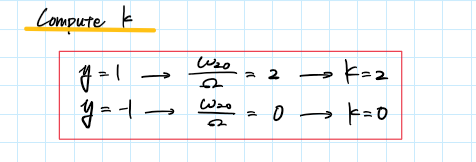 Compute k
y = 1 → ω₂₀/Ω = 2 → k=2
y = -1 → ω₂₀/Ω = 0 → k=0